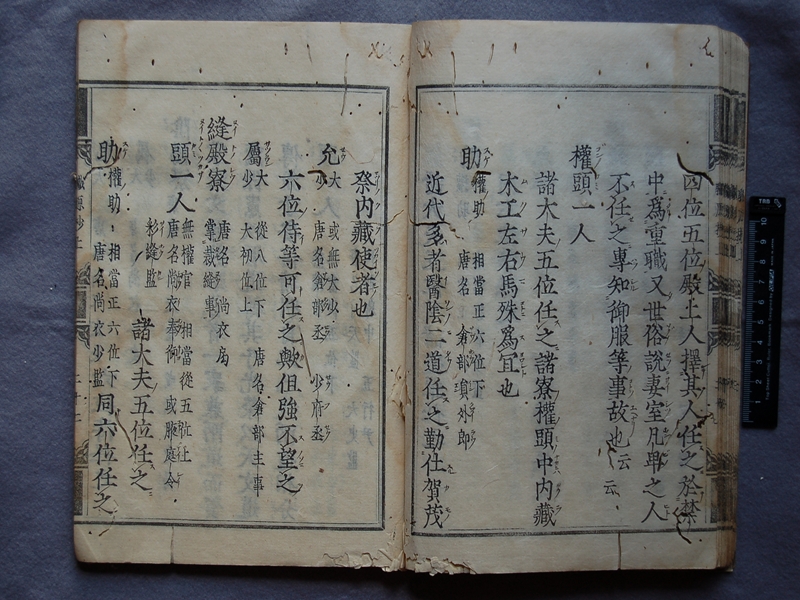 四位五位殿上人擇其人任之於禁
中爲重職又世俗說妻室凡卑之人
不任之專知御服等事故也云云
權頭一人
諸大夫五位任之諸寮權頭中內藏
木工左右馬殊爲冝也
助 權助 相當正六位下 唐名 倉部員外郎
近代多者醫陰二道任之勤仕賀茂
祭內藏使者也
允 大 少 或無大少 唐名倉部丞 少府丞
六位侍等可任之歟但強不望之
屬 大 少 從八位下 大初位上 唐名倉部主事
縫殿寮 唐名 尚衣局 掌裁縫事
頭一人 無權官 相當從五位上 唐名尚衣奉御 或腋庭令
彩縫監 諸大夫五位任之
助 權助 相當正六位下 唐名尚衣少監 同六位任之